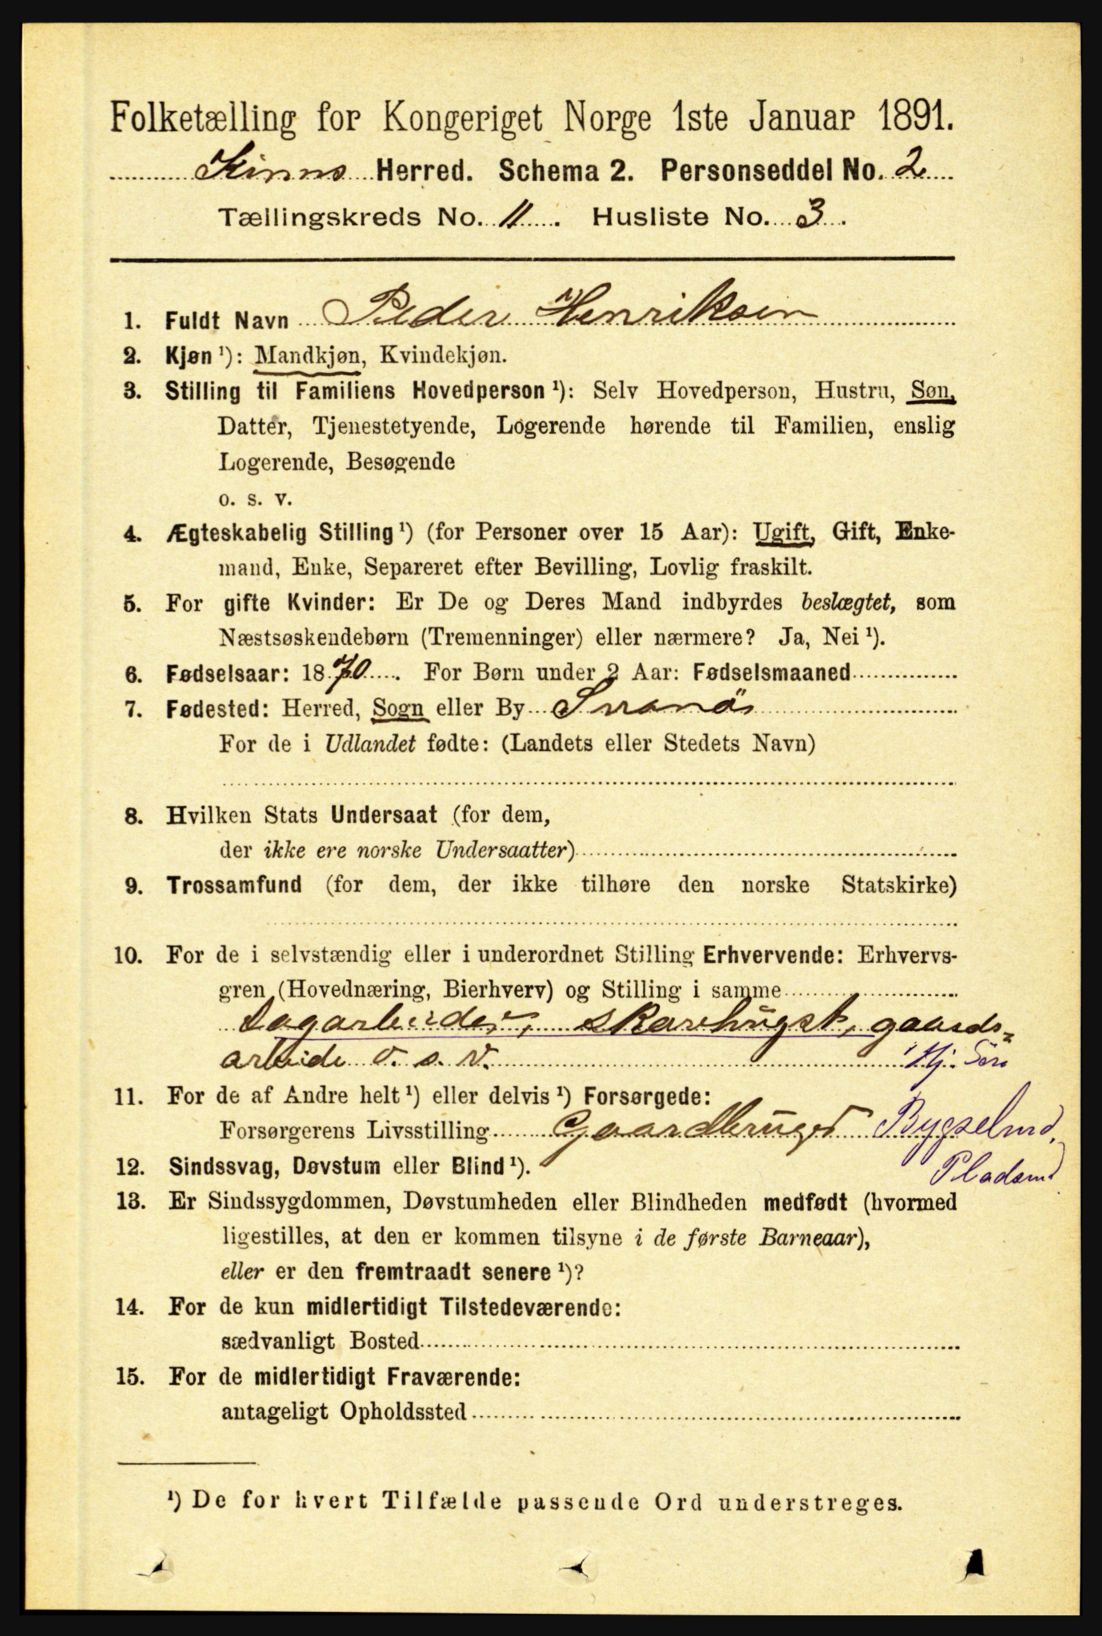 Folketælling for Kongeriget Norge 1ste Januar 1891.
Kinns Herred. Schema 2. Personseddel No. 2
Tællingskreds No. 11. Husliste No. 3.
1. Fuldt Navn Peder Henriksen
2. Kjøn ¹): Mandkjøn, Kvindekjøn.
3. Stilling til Familiens Hovedperson ¹): Selv Hovedperson, Hustru, Søn,
Datter, Tjenestetyende, Logerende hørende til Familien, enslig
Logerende, Besøgende
o. s. v.
4. Ægteskabelig Stilling ¹) (for Personer over 15 Aar): Ugift, Gift, Enke-
mand, Enke, Separeret efter Bevilling, Lovlig fraskilt.
5. For gifte Kvinder: Er De og Deres Mand indbyrdes beslægtet, som
Næstsøskendebørn (Tremenninger) eller nærmere? Ja, Nei ¹).
6. Fødselsaar: 1870. For Børn under 2 Aar: Fødselsmaaned
7. Fødested: Herred, Sogn eller By Svanö
For de i Udlandet fødte: (Landets eller Stedets Navn)
8. Hvilken Stats Undersaat (for dem,
der ikke ere norske Undersaatter)
9. Trossamfund (for dem, der ikke tilhøre den norske Statskirke)
10. For de i selvstændig eller i underordnet Stilling Erhvervende: Erhvervs-
gren (Hovednæring, Bierhverv) og Stilling i samme
Dagarbeider, skovhugst, gaards-
arbeide o. s. v. Hj. Søn
11. For de af Andre helt ¹) eller delvis ¹) Forsørgede:
Forsørgerens Livsstilling Gaardbruger Bygselmd,
12. Sindssvag, Døvstum eller Blind ¹). Pladsmd
13. Er Sindssygdommen, Døvstumheden eller Blindheden medfødt (hvormed
ligestilles, at den er kommen tilsyne i de første Barneaar),
eller er den fremtraadt senere ¹)?
14. For de kun midlertidigt Tilstedeværende:
sædvanligt Bosted
15. For de midlertidigt Fraværende:
antageligt Opholdssted
¹) De for hvert Tilfælde passende Ord understreges.